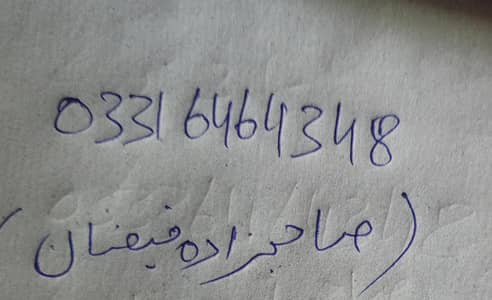 03316464348
(صاحبزاده فیضان)